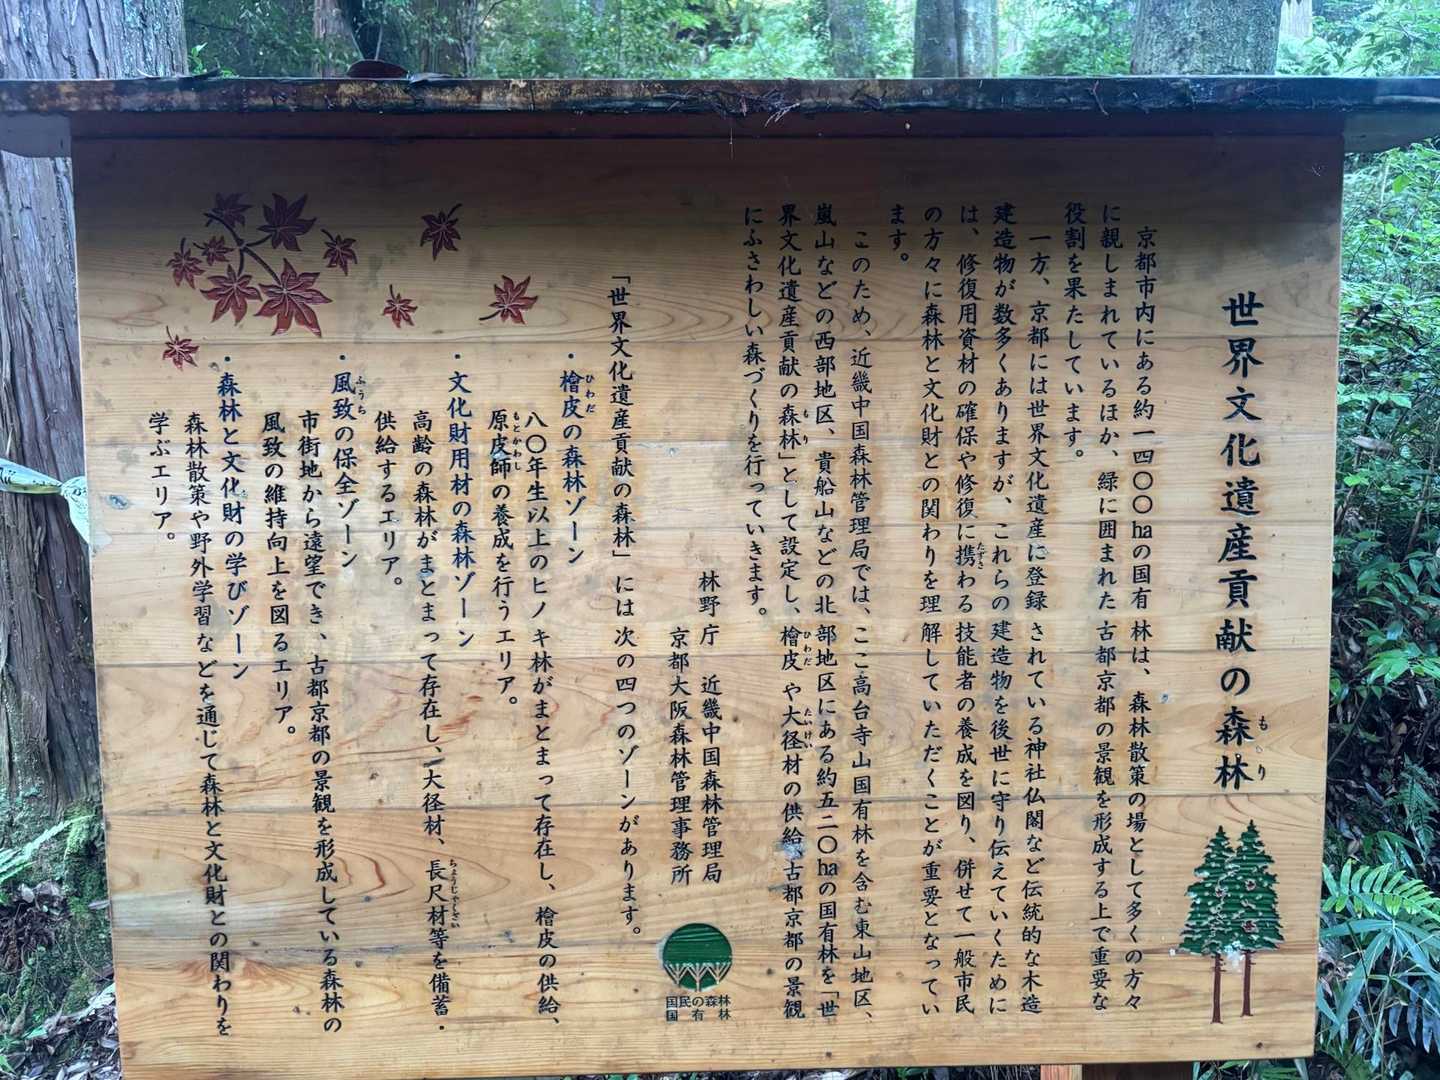 世界文化遺産貢献の森林
もり
京都市内にある約一四〇〇haの国有林は、森林散策の場として多くの方々
に親しまれているほか、緑に囲まれた古都京都の景観を形成する上で重要な
役割を果たしています。
一方、京都には世界文化遺産に登録されている神社仏閣など伝統的な木造
建造物が数多くありますが、これらの建造物を後世に守り伝えていくために
は、修復用資材の確保や修復に携わる技能者の養成を図り、併せて一般市民
たずさ
の方々に森林と文化財との関わりを理解していただくことが重要となってい
ます。
このため、近畿中国森林管理局では、ここ高台寺山国有林を含む東山地区、
嵐山などの西部地区、貴船山などの北部地区にある約五二〇haの国有林を「世
界文化遺産貢献の森林」として設定し、檜皮や大径材の供給、古都京都の景観
もり ひわだ たいけい
にふさわしい森づくりを行っていきます。
林野庁 近畿中国森林管理局
京都大阪森林管理事務所
国民の森林
国有林
「世界文化遺産貢献の森林」には次の四つのゾーンがあります。
・檜皮の森林ゾーン
ひわだ
八〇年生以上のヒノキ林がまとまって存在し、檜皮の供給、
原皮師の養成を行うエリア。
もとかわし
・文化財用材の森林ゾーン
高齢の森林がまとまって存在し、大径材、長尺材等を備蓄・
ちょうじゃくざい
供給するエリア。
・風致の保全ゾーン
ふうち
市街地から遠望でき、古都京都の景観を形成している森林の
風致の維持向上を図るエリア。
・森林と文化財の学びゾーン
森林散策や野外学習などを通じて森林と文化財との関わりを
学ぶエリア。